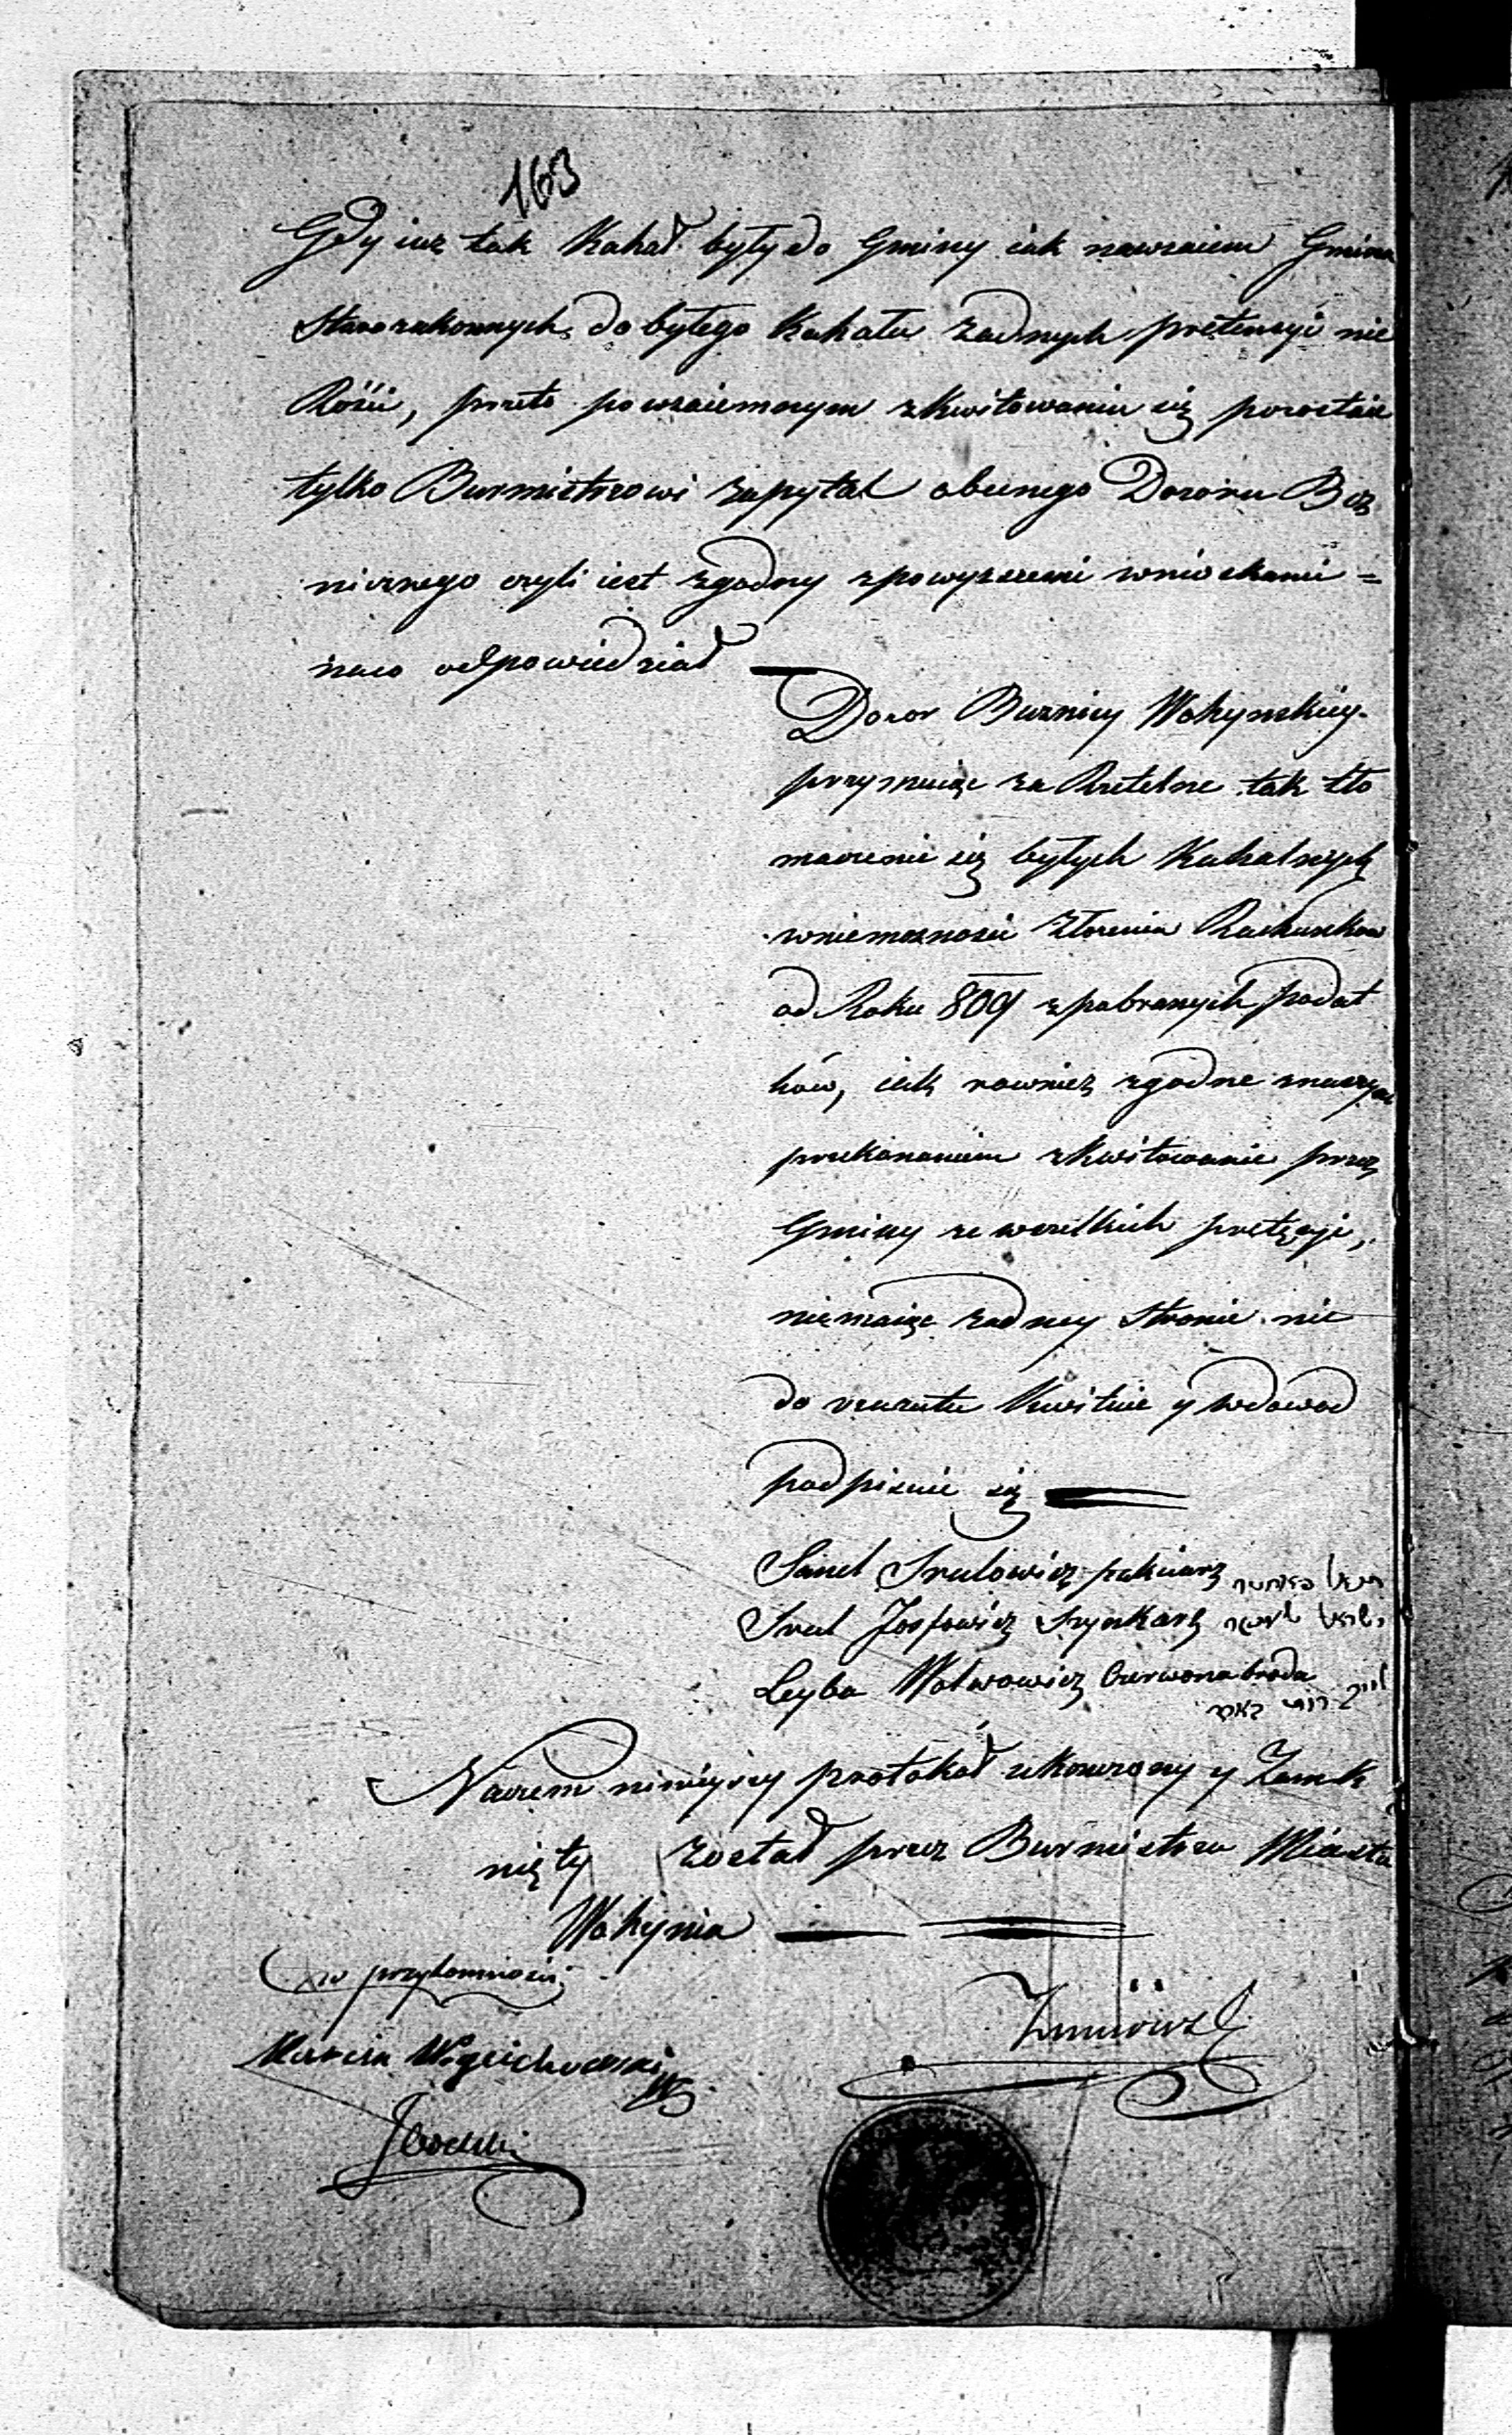 163
Gdy iuz tak Kahał były do Gminy iak nawzaiem Gmina
Starozakonnych do byłego Kahału zadnych pretensyi nie
Rości, przeto po wzaiemnym zkwitowaniu się pozostaie
tylko Burmistrzowi zapytać obecnego Dozoru Boz
nicznego czyli iest zgodny z powyzszemi wnioskami =
naco odpowiedział —
Dozor Buznicy Wohynskiey
przymuiąc za Rzetelne tak tło
maczenie się byłych Kahalnych
w niemoznosci złozenia Rachunkow
od Roku 809 z pobranych podat
ków, iak rowniez zgodne z naszym
przekonaniem zkwitowanie przez
Gminy ze wszelkich pretęsyi,
niemaiąc zadney stronie nic
do zarzutu Kwituie y w dowod
podpisuie się
Srul Josfowicz Szynkarz
Leyba Wolwowicz Czerwona broda
Naczem ninieyszy protokół ukonczony y Zamk
nięty został przez Burmistrza Miasta
Wohynia
w przytomności
Marcin Woyciechowski